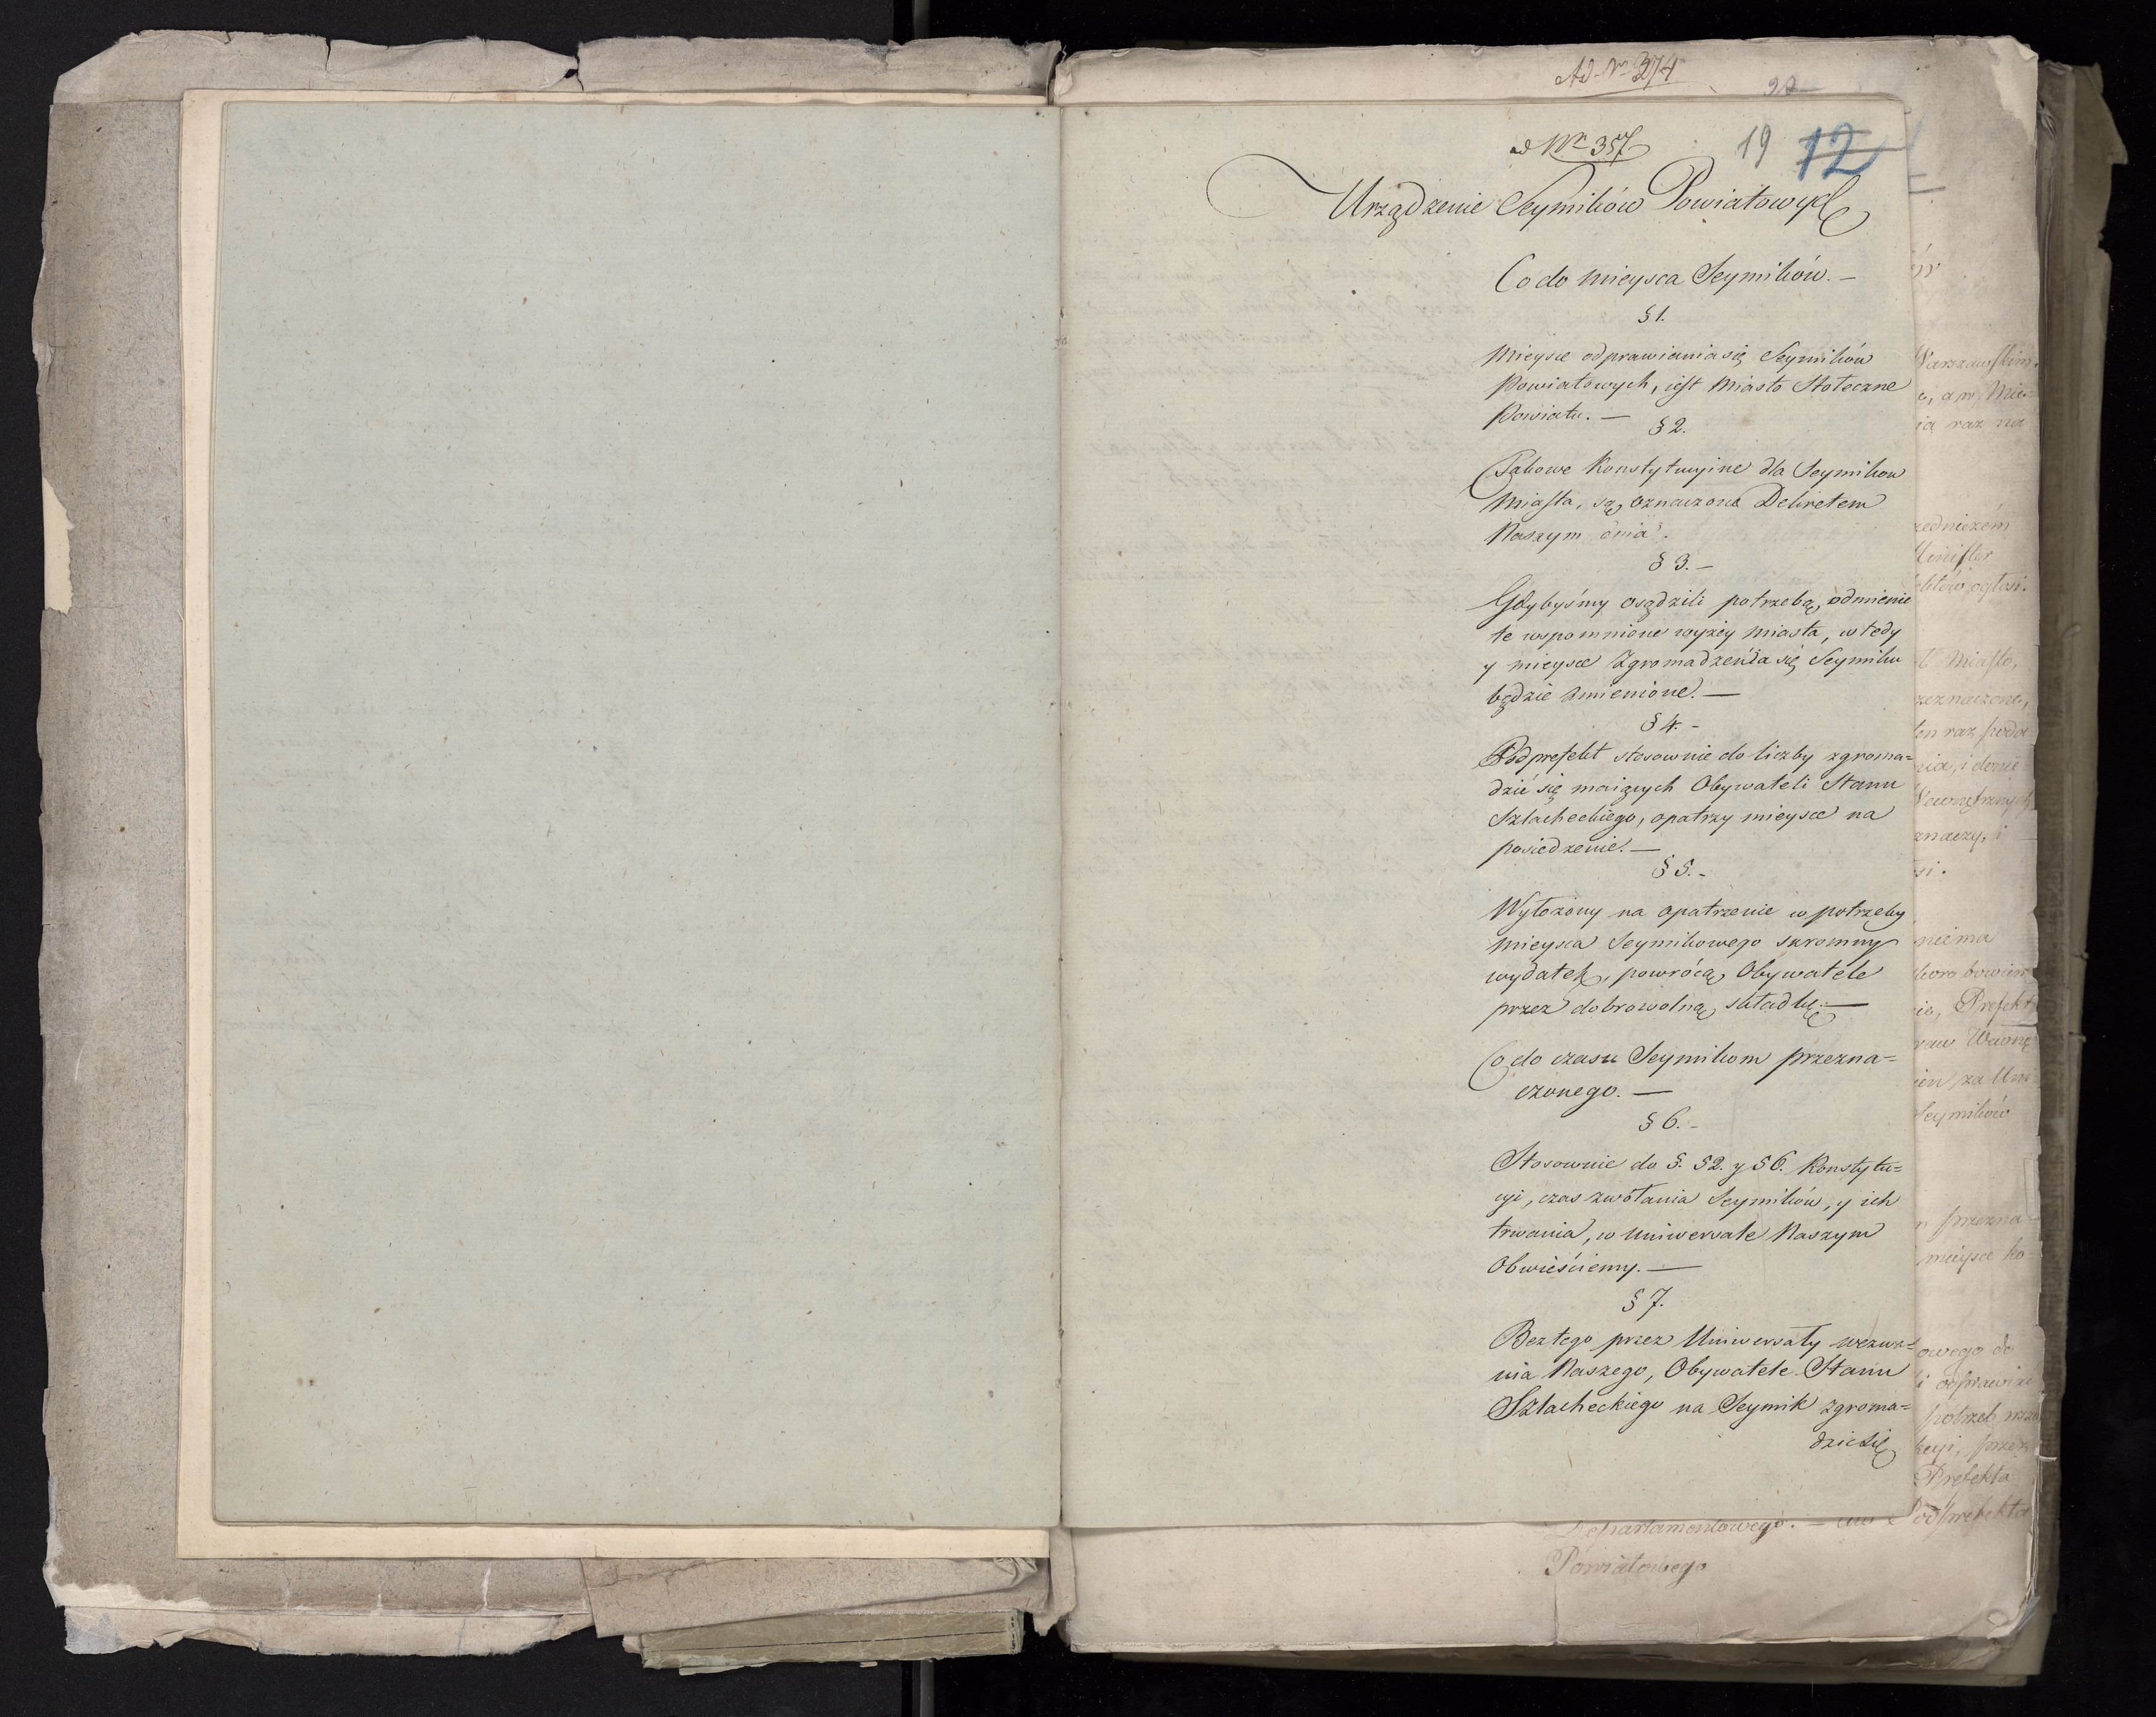 Ad Nro 374
ad Nr 357
19 12
Urządzenie Seymików Powiatowych
Co do Mieysca Seymików. —
§ 1.
Mieysce odprawiania się Seymików
Powiatowych, iest Miasto Stołeczne
Powiatu. —
§ 2.
Takowe Konstytucyine dla Seymikow
Miasta, są oznaczone Dekretem
Naszym dnia
§ 3. —
Gdybyśmy osądzili potrzebą, odmienić
te wspomnione wyżey Miasta, w tedy
y mieysce Zgromadzenia się Seymiku
będzie zmienione. —
§ 4. -
Podprefekt stosownie do liczby zgroma=
dzić się maiących Obywateli Stanu
Szlacheckiego, opatrzy mieysce na
posiedzenie. —
§ 5. -
Wyłożony na opatrzenie w potrzeby
Mieysca Seymikowego skromny
wydatek, powrócą Obywatele
przez dobrowolną składkę. —
Co do czasu Seymikom przezna=
czonego. —
§ 6. -
Stosownie do §. 52. y 56. Konstytu=
cyi, czas zwołania Seymików, y ich
trwania, w Uniwersale Naszym
Obwieściemy. —
§ 7.
Bez tego przez Uniwersały wezwa=
nia Naszego, Obywatele Stanu
Szlacheckiego na Seymik zgroma=
dzić się
Warszawskim.
a w Mie=
raz na
Minister
ogłosi.
Miasto,
raz poda
znaczy, i
niema
bowiem
Prefekt
za Uni
Seymików
przezna
mieysce ko
owego do
odprawiai
potrzeb
przez
Prefekta
Departamentowego. — Podprefekta
Powiatowego